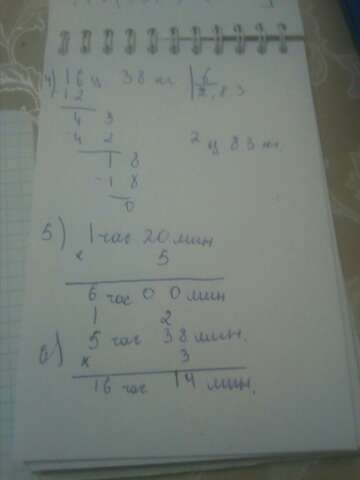 4) 16 ц 38 кг | 6
12 2,83
4 3
4 2 2 ц 83 кг
1 8
-1 8
0
5) 1 час 20 мин
x 5
6 час 00 мин
1 2
6) 5 час 38 мин.
x 3
16 час 14 мин.